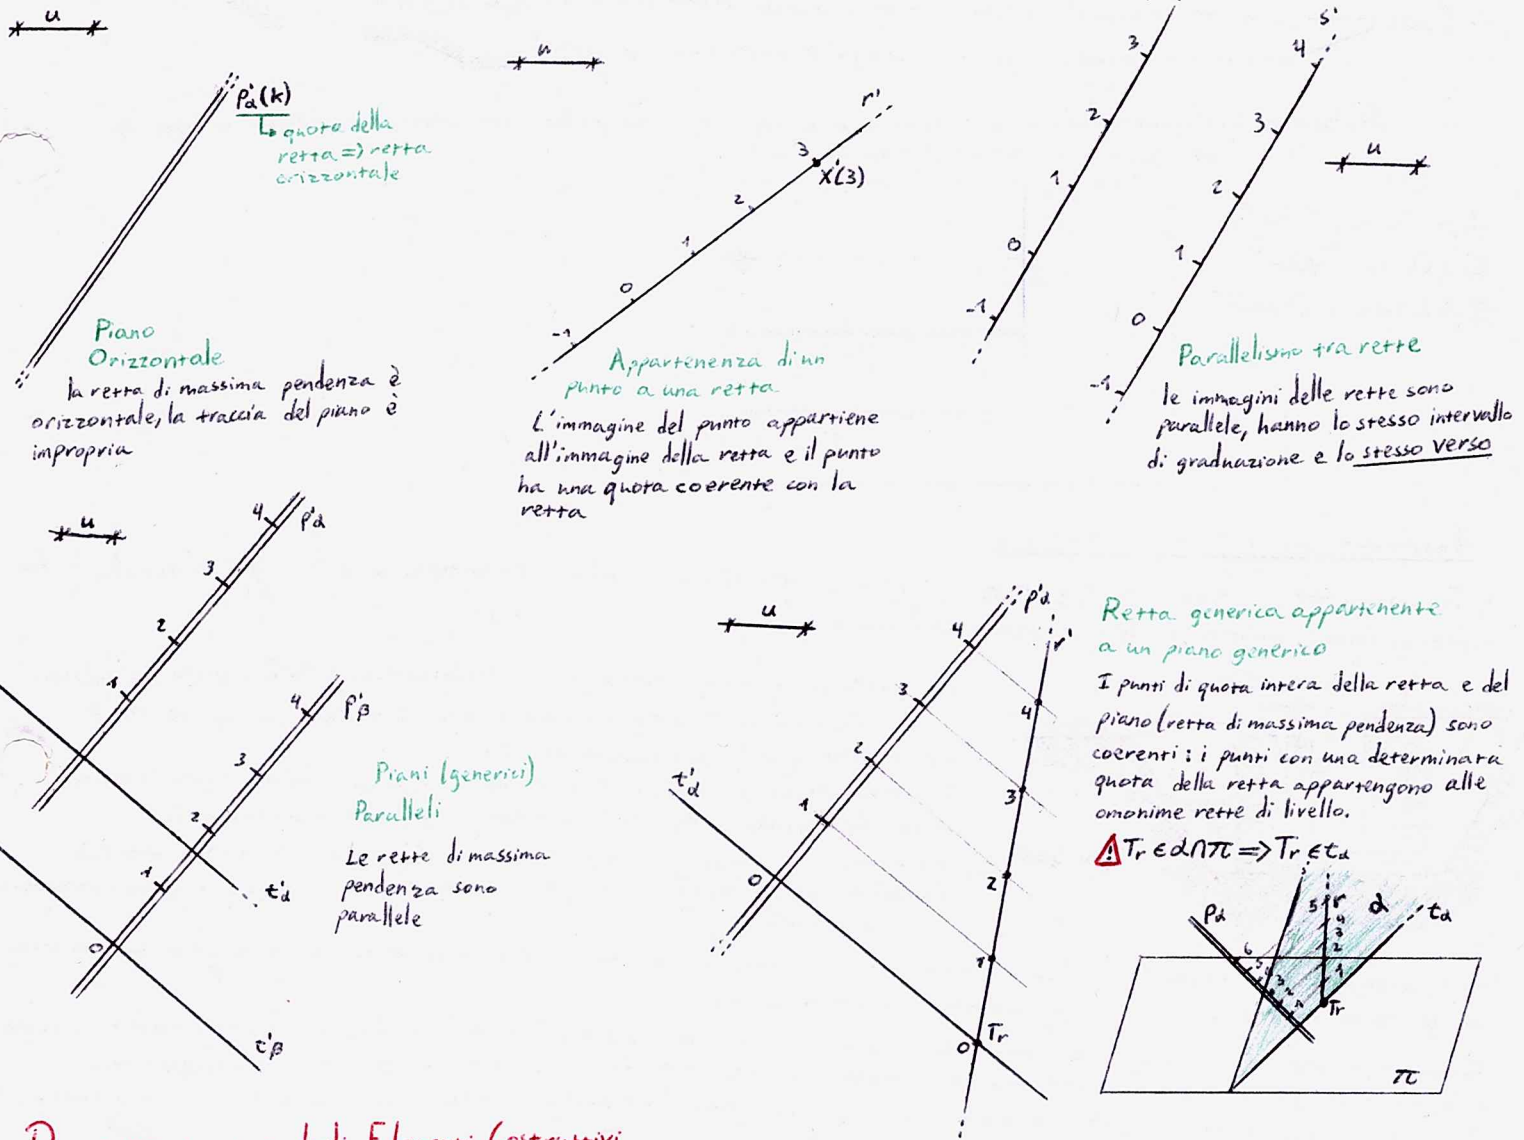 u
p'α(k)
quota della
retta => retta
orizzontale
Piano
Orizzontale
la retta di massima pendenza è
orizzontale, la traccia del piano è
impropria
u
r'
3
X'(3)
2
1
0
-1
Appartenenza di un
punto a una retta
L'immagine del punto appartiene
all'immagine della retta e il punto
ha una quota coerente con la
retta
3
2
1
0
-1
s'
4
3
2
1
0
-1
u
Parallelismo tra rette
le immagini delle rette sono
parallele, hanno lo stesso intervallo
di graduazione e lo stesso verso
u
4
p'α
3
2
1
t'α
4
p'β
3
2
1
0
t'β
Piani (generici)
Paralleli
Le rette di massima
pendenza sono
parallele
u
p'α
r'
4
3
2
1
0
t'α
4
3
2
1
0
Tr
Retta generica appartenente
a un piano generico
I punti di quota intera della retta e del
piano (retta di massima pendenza) sono
coerenti: i punti con una determinata
quota della retta appartengono alle
omonime rette di livello.
⚠ Tr ∈ α∩π => Tr ∈ tα
pα
6
5
4
3
2
1
5
r
4
3
2
1
α
tα
Tr
π
Elementi Costruttivi